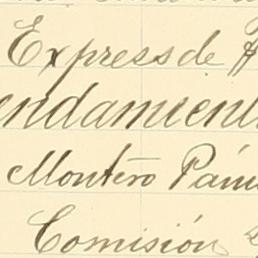 Express de
endamient
Montero Pani
Comisión